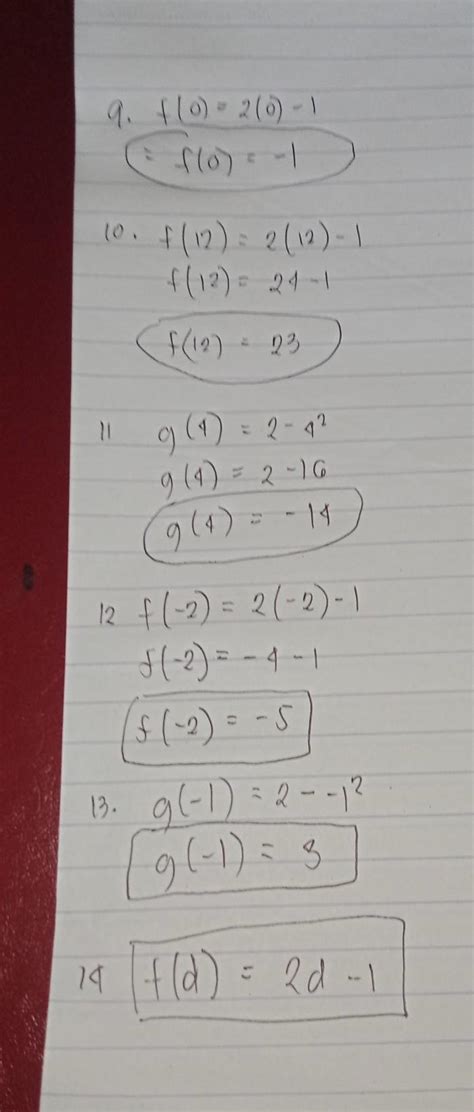 9. f(0) = 2(0) - 1
= f(0) = -1
10. f(12) = 2(12) - 1
f(12) = 24 - 1
f(12) = 23
11 g(4) = 2 - 4²
g(4) = 2 - 16
g(4) = -14
12 f(-2) = 2(-2) - 1
f(-2) = -4 - 1
f(-2) = -5
13. g(-1) = 2 - -1²
g(-1) = 3
14 f(d) = 2d - 1